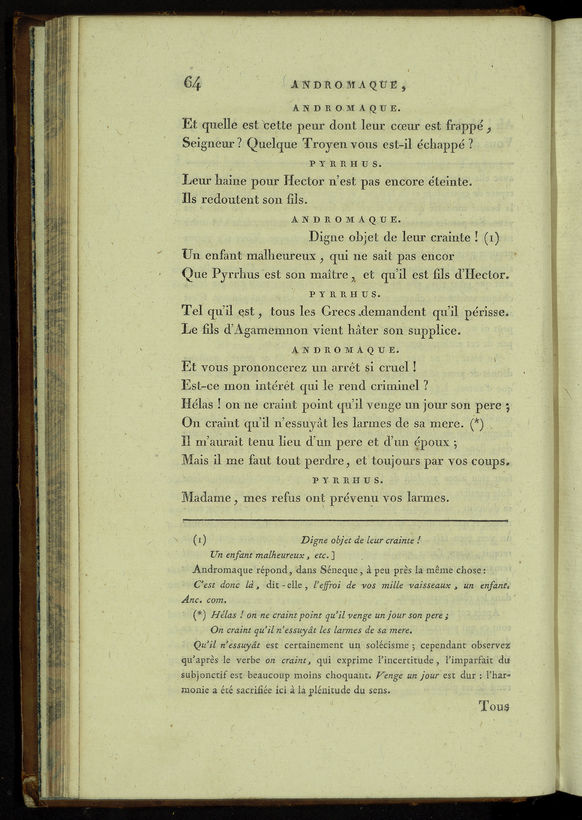 64 ANDROMAQUE,
ANDROMAQUE.
Et quelle est cette peur dont leur cœur est frappé,
Seigneur ? Quelque Troyen vous est-il échappé ?
PYRRHUS.
Leur haine pour Hector n'est pas encore éteinte.
Ils redoutent son fils.
ANDROMAQUE.
Digne objet de leur crainte ! (1)
Un enfant malheureux, qui ne sait pas encor
Que Pyrrhus est son maître, et qu'il est fils d'Hector.
PYRRHUS.
Tel qu'il est, tous les Grecs demandent qu'il périsse.
Le fils d'Agamemnon vient hâter son supplice.
ANDROMAQUE.
Et vous prononcerez un arrêt si cruel !
Est-ce mon intérêt qui le rend criminel ?
Hélas ! on ne craint point qu'il venge un jour son pere ;
On craint qu'il n'essuyât les larmes de sa mere. (*)
Il m'aurait tenu lieu d'un pere et d'un époux ;
Mais il me faut tout perdre, et toujours par vos coups.
PYRRHUS.
Madame, mes refus ont prévenu vos larmes.
(1) Digne objet de leur crainte !
Un enfant malheureux, etc. ]
Andromaque répond, dans Séneque, à peu près la même chose :
C'est donc là, dit-elle, l'effroi de vos mille vaisseaux, un enfant.
Anc. com.
(*) Hélas ! on ne craint point qu'il venge un jour son pere ;
On craint qu'il n'essuyât les larmes de sa mere.
Qu'il n'essuyât est certainement un solécisme ; cependant observez
qu'après le verbe on craint, qui exprime l'incertitude, l'imparfait du
subjonctif est beaucoup moins choquant. Venge un jour est dur : l'har-
monie a été sacrifiée ici à la plénitude du sens.
Tous